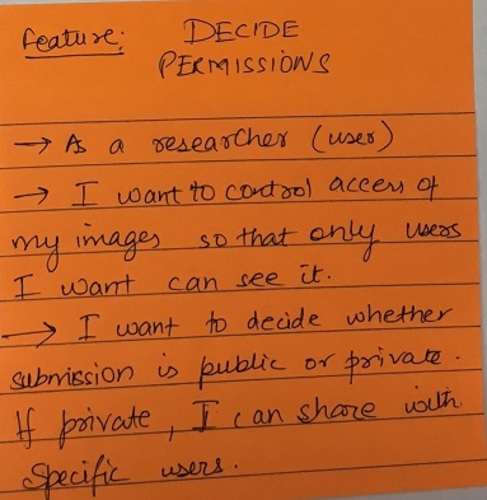 Feature: DECIDE
PERMISSIONS
→ As a researcher (user)
→ I want to control access of
my images so that only users
I want can see it.
→ I want to decide whether
submission is public or private.
If private, I can share with
specific users.